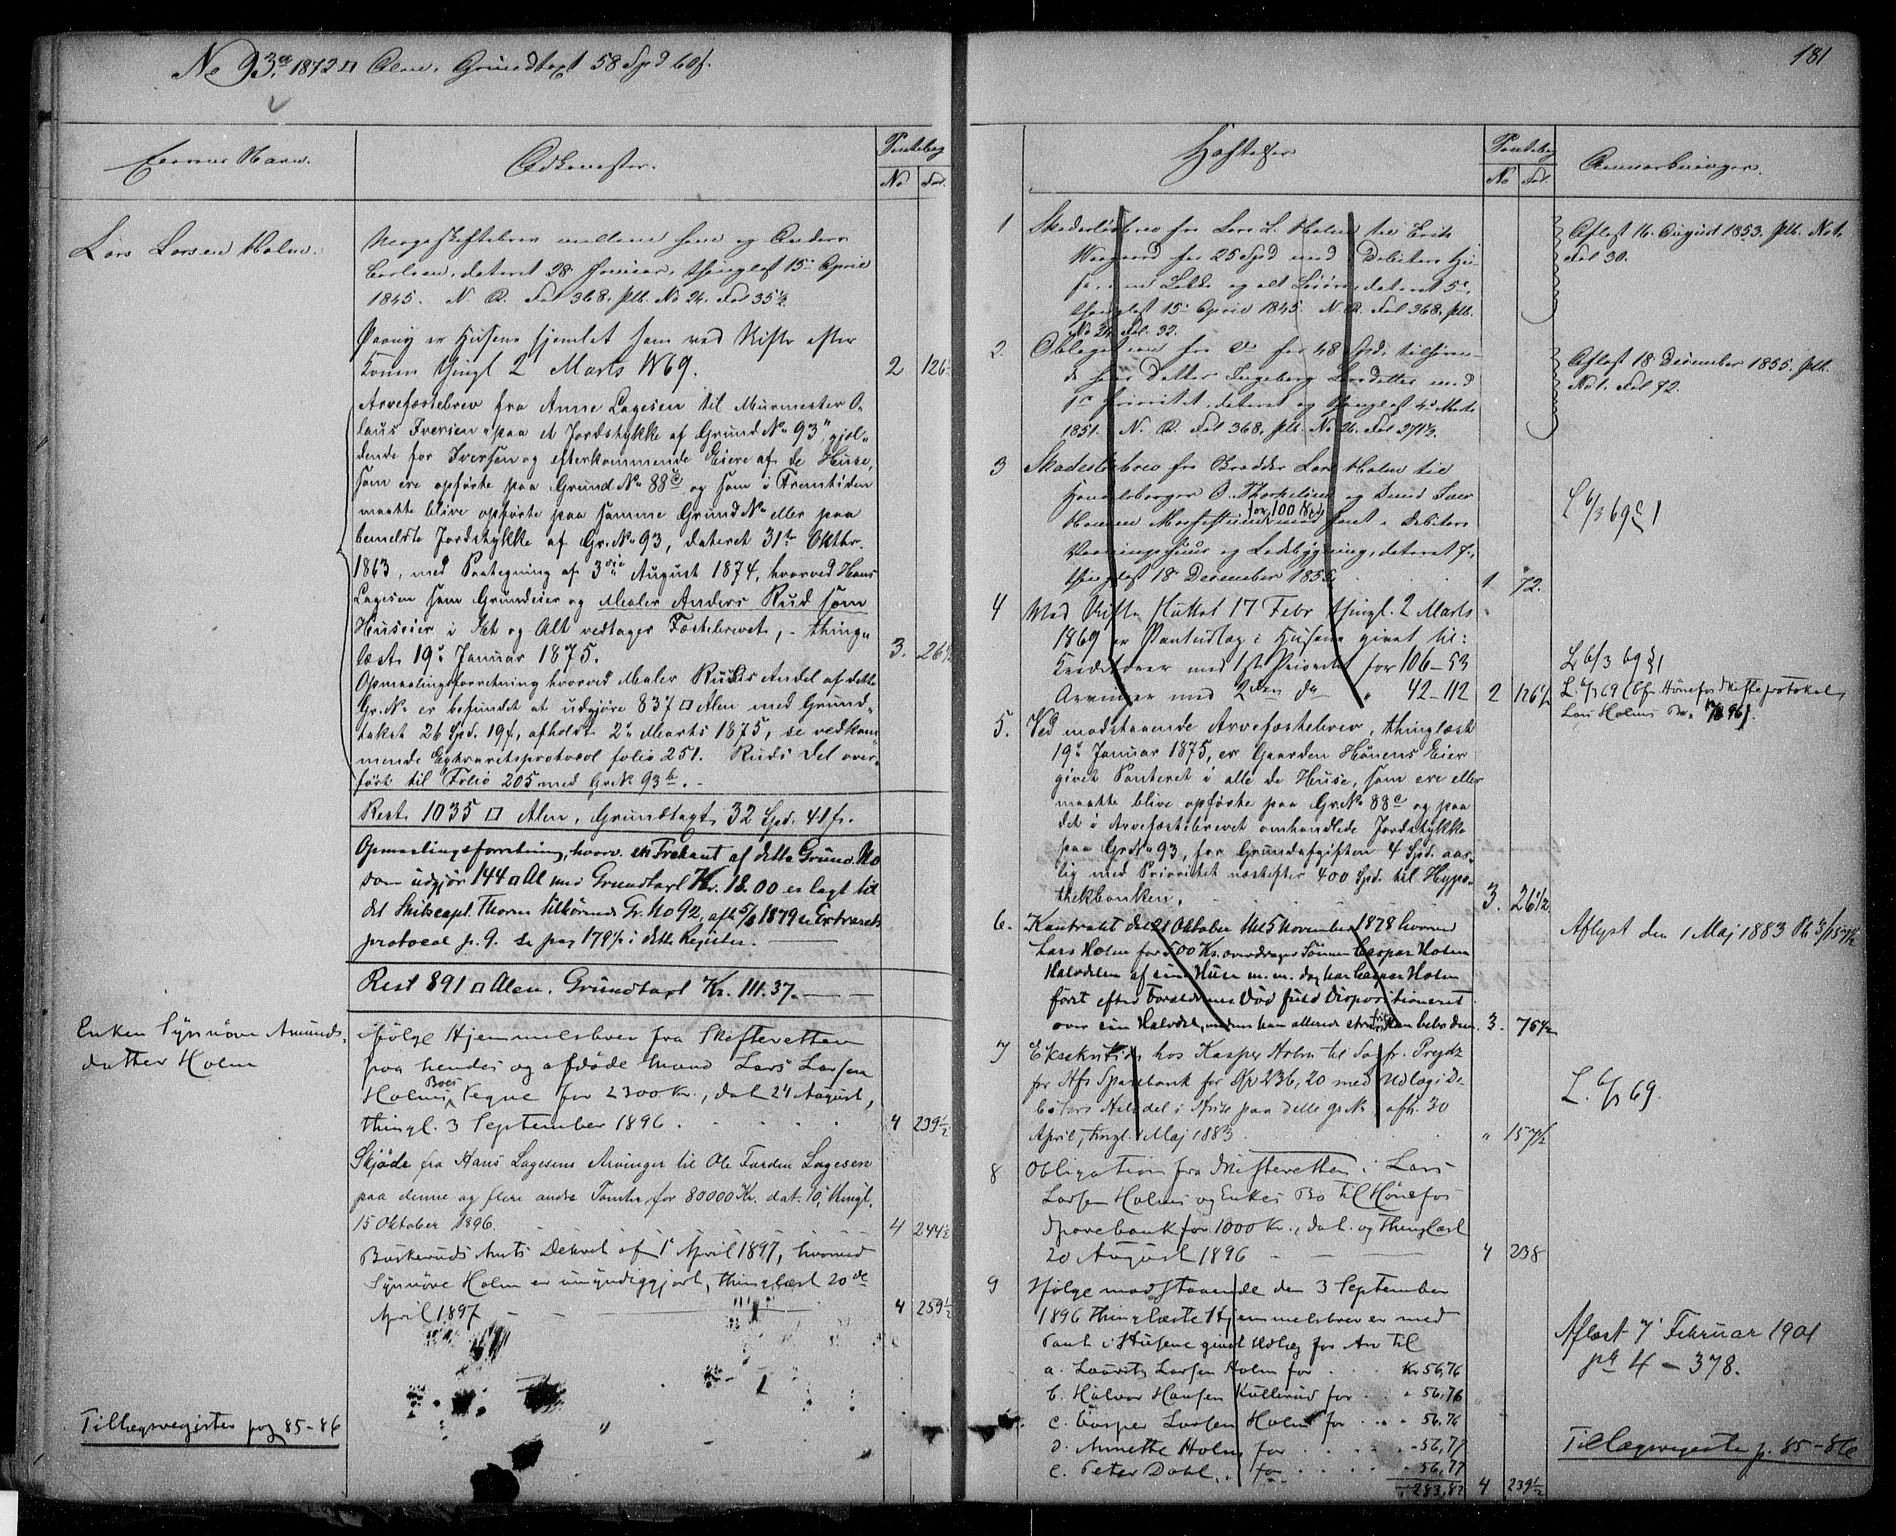 No 93a. 1872 □ Alen. Grundtaxt 58 Spd 60 s.
181
Eierens Navn.
Adkomster.
Pantebog
No Fol.
Lars Larsen Holm.
Mageskiftebrev mellem ham og Anders
Carlsen, dateret 28 Januar, thinglæst 15 April
1845. N. R. Fol 368. ptb. No 24. Fol 35½.
Øvrig er Husene hjemlet ham ved Skifte efter
Konen thingl 2 Marts 1869. 2 126½
Arvefæstebrev fra Anne Lagesen til Murmester O-
laus Iversen "paa et Jordstykke af Grund No 93", gjæl-
dende for Iversen og efterkommende Eiere af de Huse,
som ere opførte paa Grund No 88c og som i Fremtiden
maatte blive opførte paa samme Grund No eller paa
bemeldte Jordstykke af Gr. No 93, dateret 31te Oktbr.
1863, med Paategning af 3die August 1874, hvorved Hans
Lagesen som Grundeier og Maler Anders Rud som
Huseier i Et og Alt vedtager Fæstebrevet, - thing-
læst 19 Januar 1875. 3. 26½
Opmaalingsforretning hvorved Maler Ruds Andel af dette
Gr. No er befundet at udgjøre 837 □ Alen med Grund-
takst 26 Spd. 19 s, afholdt 2 Marts 1875, se vedkom-
mende Extraretsprotocol folio 251. Ruds Del over-
ført til Folio 205 med Gr No 93b.
Rest 1035 □ Alen, Grundtaxt 32 Spd. 41 s.
Opmaalingsforretning, hvorv. en Trekant af dette Grund. No
som udgjør 144 □ Al med Grundtaxt Kr. 18.00 er lagt til
det Skibscapt. Thorne tilhørende Gr. No 92, afh 5/8 1879 se Extrarets
protocol p. 9. se pag 179½ i dette Register.
Rest 891 □ Alen. Grundtaxt Kr. 111.37.
Enken Synnøve Amunds
datter Holm
Ifølge Hjemmelsbrev fra Skifteretten
paa hendes og afdøde Mand Lars Larsen
Holms Boes Vegne for 2300 Kr., dat 24 August,
thingl. 3 September 1896. 4 239½
Skjøde fra Hans Lagesens Arvinger til Ole Furden Lagesen
paa denne og flere andre Tomter for 80000 Kr. dat. 10, thingl.
15 Oktober 1896. 4 244½
Buskeruds Amts Dekret af 1 April 1897, hvorved
Synnøve Holm er umyndiggjort, thinglæst 20de
April 1897 4 259½
Tillægsregister pag 85-86
Hæftelser
Pantebog
No Fol.
Anmærkninger.
1 Skadesløsbrev fra Lars L. Holm til Erik
for 25 Spd med i Debitors Hu-
se, med Løkke og alt Løsøre, dateret 5,
thinglæst 15 April 1845. N. R. Fol 368. ptb.
No 24 Fol. 32.
Aflæst 16 August 1853. ptb. No 1.
Fol 30.
2. Obligation fra Do for 48 Spd. tilhøren-
de hans Datter Ingeborg Larsdatter med
1ste Prioritet, dateret og thinglæst 4 Marts
1851. N. R. Fol 368. ptb. No 26. Fol 271½.
Aflæst 18 December 1855. ptb.
No 1. Fol 72.
3 Skadesløsbrev fra Brødder Lars Holm til
Handelsborger O. Thorkelsen og Svend
for 100 Spd med Pant i Debitors
Vaaningshuus og Ladebygning, dateret 7,
thinglæst 18 December 1855. 1 72.
L 6/3 69 § 1
4 Med Skifte sluttet 17 Febr thingl. 2 Marts
1869 er Pantudlæg i Husene givet til:
Kreditorer med 1ste Prioritet for 106-53
Arvinger med 2den do " 42-112 2 126½
L 6/3 69 § 1
L. 6/3 69 (cfr. Hønefos Skifteprotokol,
Lars Holms Bo,
5. Ved modstaaende Arvefæstebrev, thinglæst
19 Januar 1875, er Gaarden Hønens Eier
givet Panteret i alle de Huse, som ere eller
maatte blive opførte paa Gr No 88c og paa
det i Arvefæstebrevet omhandlede Jordstykke
paa Gr No 93, for Grundafgiften 4 Spd. aar-
lig med Prioritet næstefter 400 Spd. til Hypo-
thekbanken. 3. 26½
6. Kontrakt dat 21 Oktober thl 5 November 1878 hvorved
Lars Holm for 500 Kr. overdrager Sønnen Caspar Holm
Halvdelen af sine Huse m. m. dog har Caspar Holm
først efter Forældrenes Død fuld Dispositionsret
over sin Halvdel, medens han allerede strax frit kan bebo den. 3. 75½
Aflyst den 1 Maj 1883 Pb 3/157½
7 Eksekution hos Kasper Holm til Sagfr. Preydz
for Hfs Sparebank for Kr 236,20 med Udlæg i De-
bitors Halvdel i Huse paa dette gr. No, afh. 30
April, tingl. 1 Maj 1883 " 157½
L. 6/3 69.
8 Obligation fra Skifteretten i Lars
Larsen Holms og Enkes Bo til Hønefos
Sparebank for 1000 Kr., dat. og thinglæst
20 August 1896 4 238
9 Ifølge modstaaende den 3 September
1896 thinglæste Hjemmelsbrev er med
Pant i Husene givet Udlæg for Arv til
a. Lauritz Larsen Holm for Kr 56,76
b. Halvor Hansen Kullerud for " 56,76
c. Casper Larsen Holm for " 56,76
d. Annette Holm for " 56,77
e. Peter Dahl for " 56,77
283,82 4 239½
Aflæst 7 Februar 1901
pb 4 - 378.
Tillægsregister p. 85-86